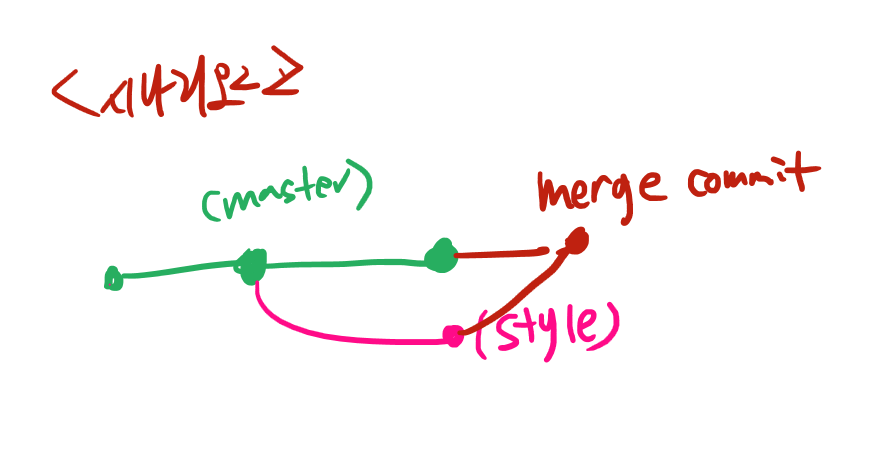 <시나리오2>
(master)
merge commit
(style)